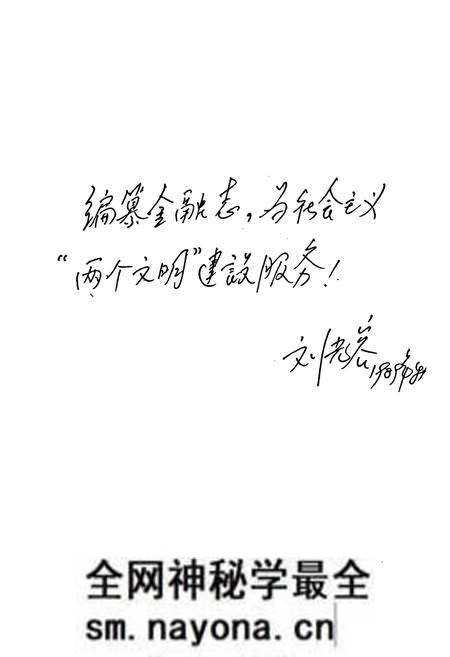 编纂金融志，为社会主义
“两个文明”建设服务！
刘光容
全网神秘学最全
sm.nayona.cn